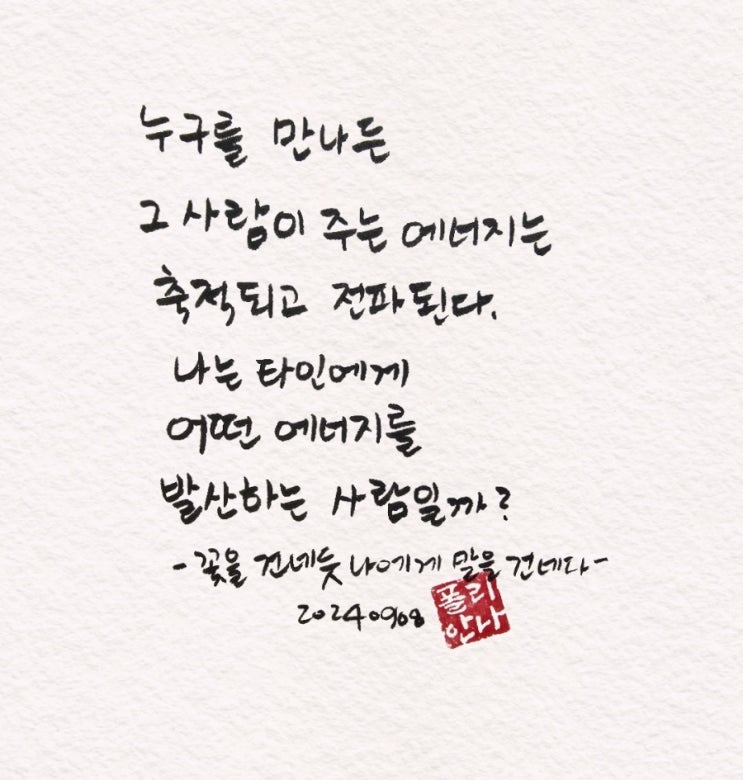 누구를 만나든
그 사람이 주는 에너지는
축적되고 전파된다.
나는 타인에게
어떤 에너지를
발산하는 사람일까?
-꽃을 건네듯 나에게 말을 건네다-
20240908
폴리
안나